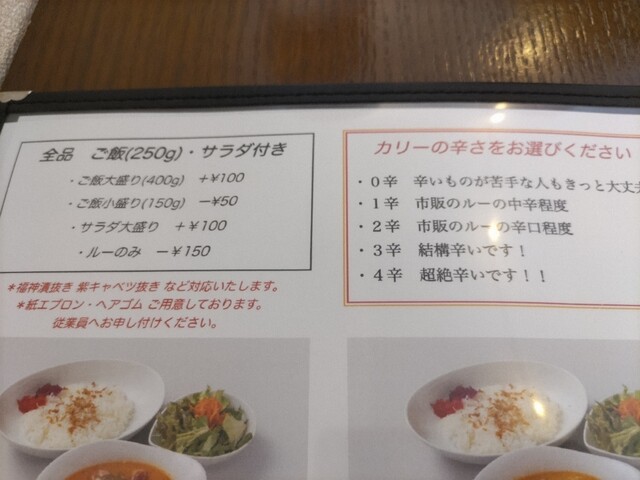 全品　ご飯(250g)・サラダ付き
・ご飯大盛り(400g)　+¥100
・ご飯小盛り(150g)　ー¥50
・サラダ大盛り　+¥100
・ルーのみ　ー¥150
*福神漬抜き 紫キャベツ抜き など対応いたします。
*紙エプロン・ヘアゴム ご用意しております。
従業員へお申し付けください。
カリーの辛さをお選びください
・０辛　辛いものが苦手な人もきっと大丈夫
・１辛　市販のルーの中辛程度
・２辛　市販のルーの辛口程度
・３辛　結構辛いです！
・４辛　超絶辛いです！！